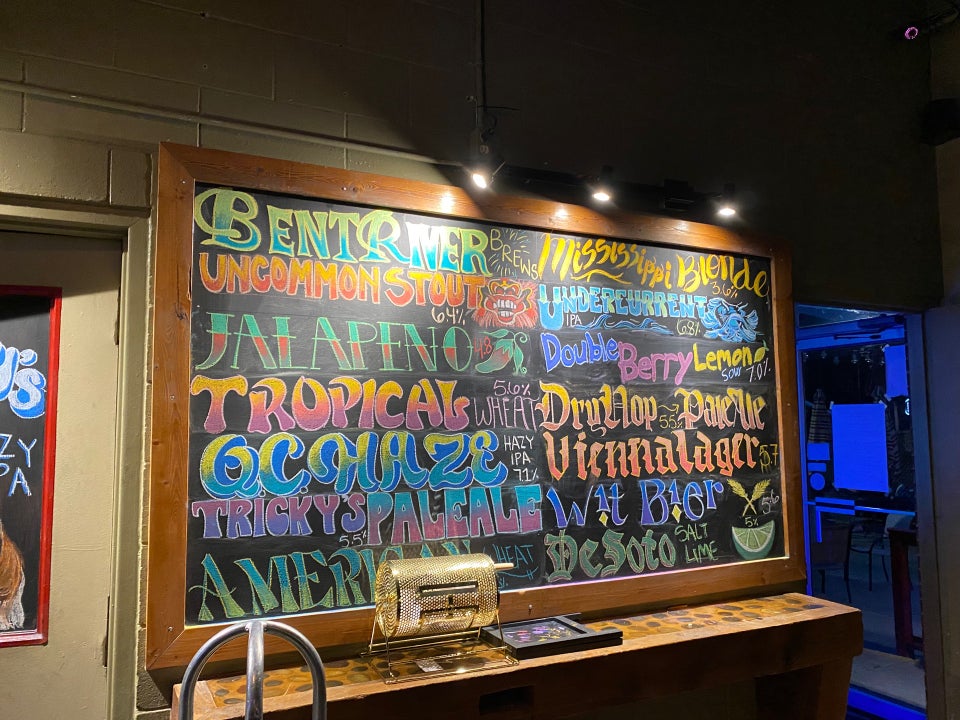 BENT RIVER BREWS
UNCOMMON STOUT
6.4%
JALAPENO 4.8
TROPICAL WHEAT
5.6%
Q.C. HAZE HAZY
IPA
7.1%
TRICKY'S PALE ALE
5.5%
AMERICAN WHEAT
Mississippi Blonde
3.6%
UNDERCURRENT
IPA 6.8%
Double Berry Lemon
SOUR 7.0%
Dry Hop Pale Ale
5.5%
Vienna Lager 5.7
Wit Bier 5%
DeSoto SALT
LIME
5%